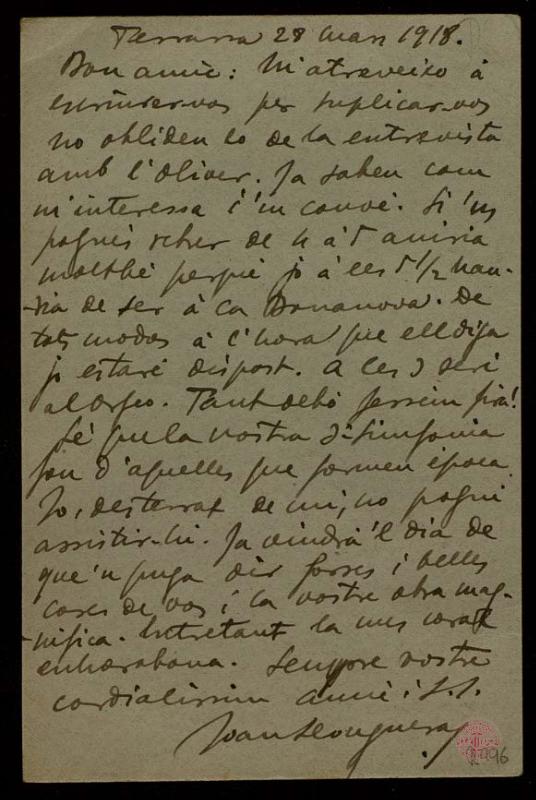 Terrassa 28 mars 1918.
Bon amic: M'atreveixo á
escriurer-vos per suplicar-vos
no obliden lo de la entrevista
amb l'Oliver. Ja saben com
m'interessa i'm convé. Si 'ns
pogués rebrer de 4 á 5 aniria
moltbé perqué jo á les 5 1/2 hau-
-ria de ser á ca Bonanova. De
tots modos á l'hora que ell diga
jo estaré dispost. A les 3 seré
al Orfeo. Tant debó fessem fira!
Sé que la vostra 3ª Simfonia
fou d'aquelles que formen época.
Jo, desterrat de mi, no pogui
assistir-hi. Ja vindrá 'l dia de
que'n puga dir forses i belles
coses de vos i la vostre obra mag-
-nifica. Entretant la mes coral
enhorabona. Sempre vostre
cordialissim amic i S.S.
Joan Llongueras